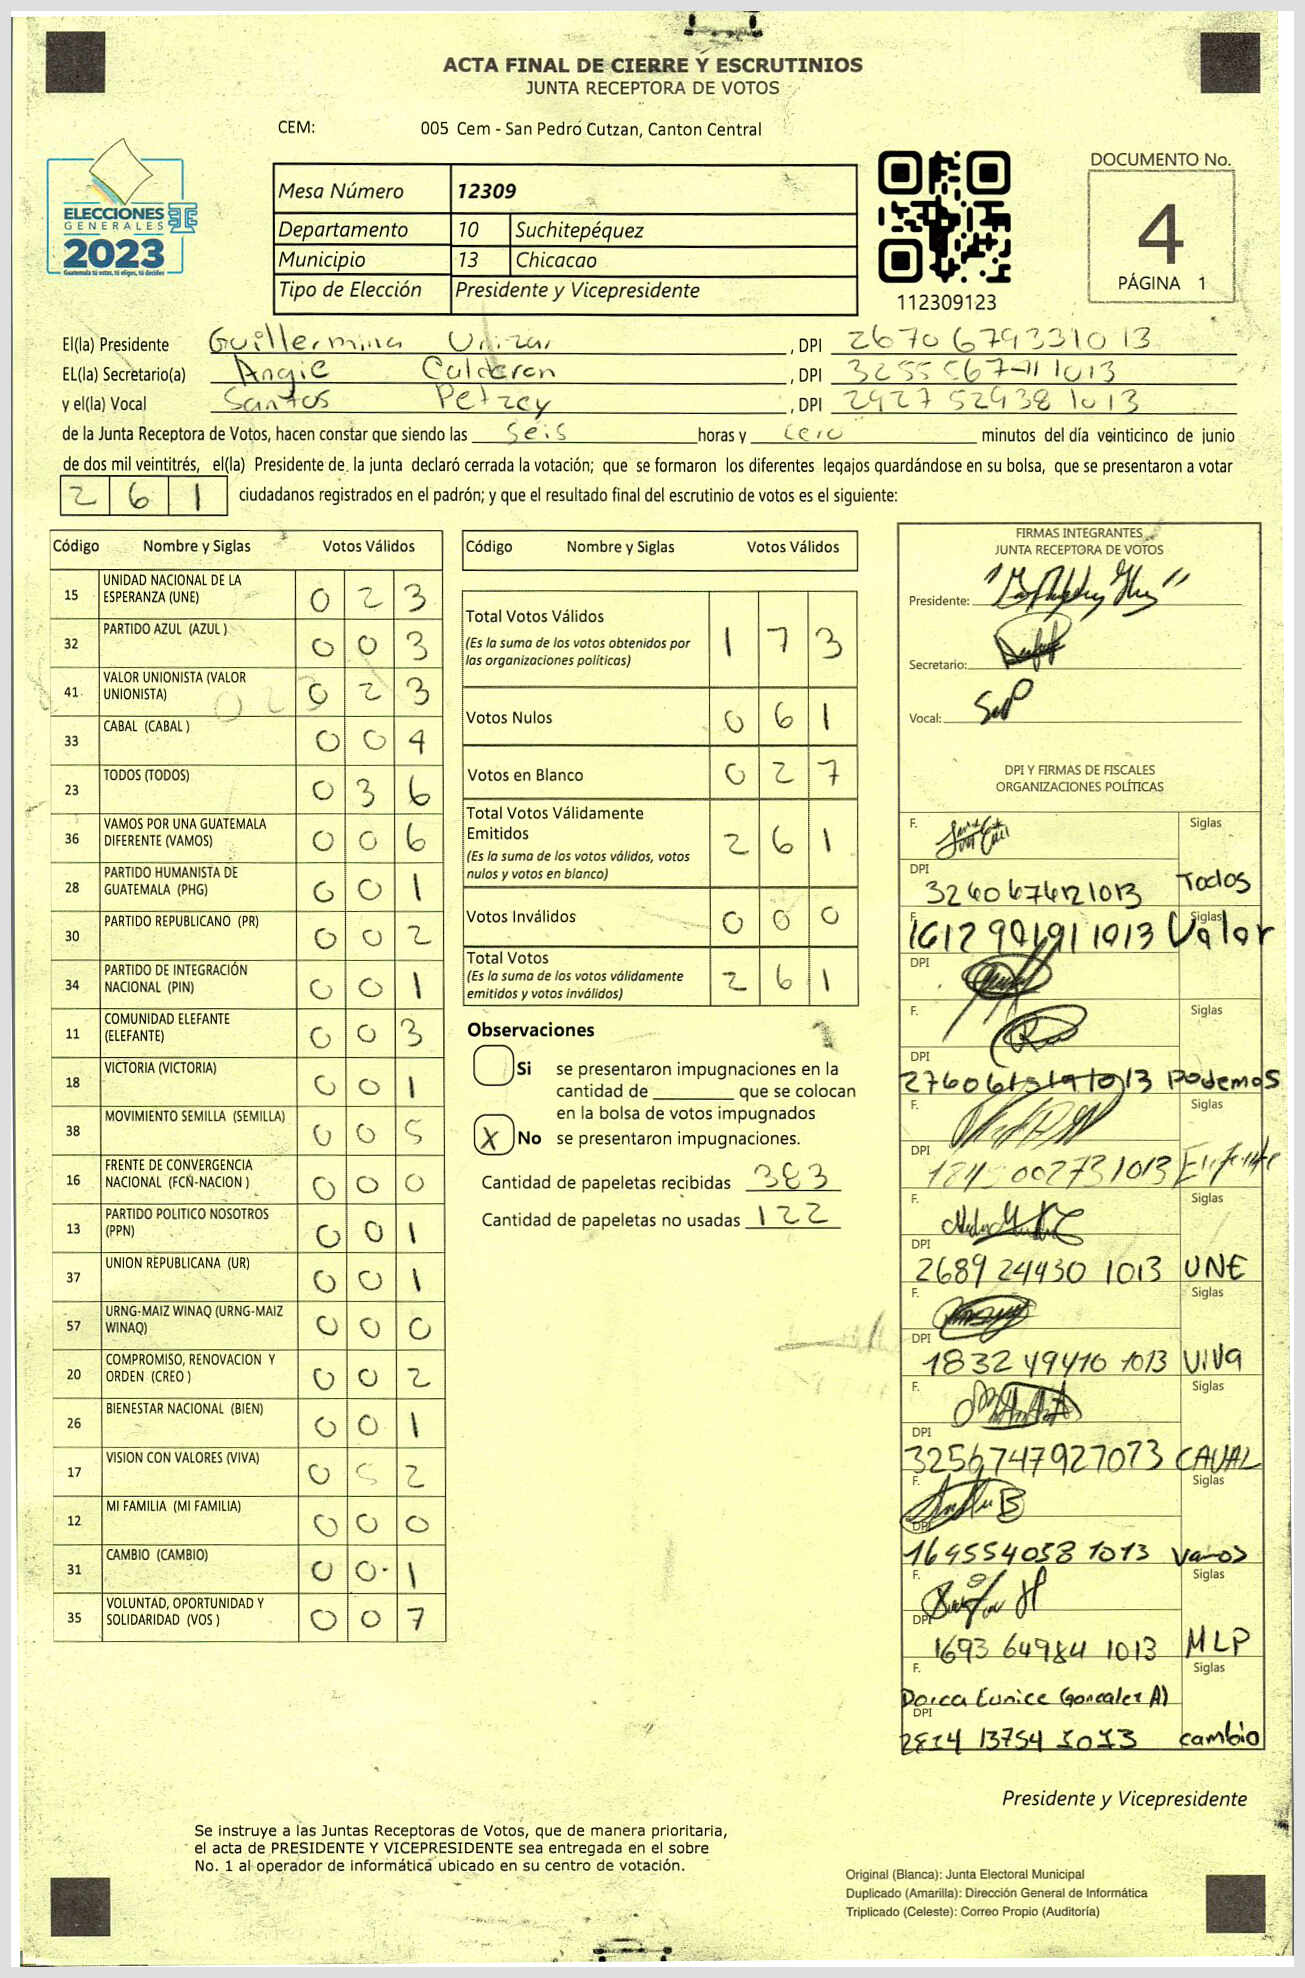 ACTA FINAL DE CIERRE Y ESCRUTINIOS
JUNTA RECEPTORA DE VOTOS
CEM: 005 Cem - San Pedro Cutzan, Canton Central
ELECCIONES
GENERALES
2023
Guatemala tú votas, tú eliges, tú decides
Mesa Número 12309
Departamento 10 Suchitepéquez
Municipio 13 Chicacao
Tipo de Elección Presidente y Vicepresidente
112309123
DOCUMENTO No.
4
PÁGINA 1
El(la) Presidente Guillermina Urizar , DPI 2670679331013
EL(la) Secretario(a) Angie Calderon , DPI 3255567411013
y el(la) Vocal Santos Petzey , DPI 2927529381013
de la Junta Receptora de Votos, hacen constar que siendo las seis horas y cero minutos del día veinticinco de junio
de dos mil veintitrés, el(la) Presidente de la junta declaró cerrada la votación; que se formaron los diferentes legajos guardándose en su bolsa, que se presentaron a votar
261 ciudadanos registrados en el padrón; y que el resultado final del escrutinio de votos es el siguiente:
Código Nombre y Siglas Votos Válidos
15 UNIDAD NACIONAL DE LA ESPERANZA (UNE) 0 2 3
32 PARTIDO AZUL (AZUL ) 0 0 3
41 VALOR UNIONISTA (VALOR UNIONISTA) 0 2 3
33 CABAL (CABAL ) 0 0 4
23 TODOS (TODOS) 0 3 6
36 VAMOS POR UNA GUATEMALA DIFERENTE (VAMOS) 0 0 6
28 PARTIDO HUMANISTA DE GUATEMALA (PHG) 0 0 1
30 PARTIDO REPUBLICANO (PR) 0 0 2
34 PARTIDO DE INTEGRACIÓN NACIONAL (PIN) 0 0 1
11 COMUNIDAD ELEFANTE (ELEFANTE) 0 0 3
18 VICTORIA (VICTORIA) 0 0 1
38 MOVIMIENTO SEMILLA (SEMILLA) 0 0 5
16 FRENTE DE CONVERGENCIA NACIONAL (FCN-NACION ) 0 0 0
13 PARTIDO POLITICO NOSOTROS (PPN) 0 0 1
37 UNION REPUBLICANA (UR) 0 0 1
57 URNG-MAIZ WINAQ (URNG-MAIZ WINAQ) 0 0 0
20 COMPROMISO, RENOVACION Y ORDEN (CREO ) 0 0 2
26 BIENESTAR NACIONAL (BIEN) 0 0 1
17 VISION CON VALORES (VIVA) 0 5 2
12 MI FAMILIA (MI FAMILIA) 0 0 0
31 CAMBIO (CAMBIO) 0 0 1
35 VOLUNTAD, OPORTUNIDAD Y SOLIDARIDAD (VOS ) 0 0 7
Código Nombre y Siglas Votos Válidos
Total Votos Válidos 1 7 3
(Es la suma de los votos obtenidos por
las organizaciones políticas)
Votos Nulos 0 6 1
Votos en Blanco 0 2 7
Total Votos Válidamente
Emitidos 2 6 1
(Es la suma de los votos válidos, votos
nulos y votos en blanco)
Votos Inválidos 0 0 0
Total Votos 2 6 1
(Es la suma de los votos válidamente
emitidos y votos inválidos)
Observaciones
Si se presentaron impugnaciones en la
cantidad de ________ que se colocan
en la bolsa de votos impugnados
X No se presentaron impugnaciones.
Cantidad de papeletas recibidas 383
Cantidad de papeletas no usadas 122
FIRMAS INTEGRANTES
JUNTA RECEPTORA DE VOTOS
Presidente:
Secretario:
Vocal:
DPI Y FIRMAS DE FISCALES
ORGANIZACIONES POLÍTICAS
F. Siglas
DPI
Todos
F. Siglas
Valor
DPI
F. Siglas
DPI
Podemos
F. Siglas
DPI
Elefante
F. Siglas
DPI
2689 24430 1013 UNE
F. Siglas
DPI
1832 49410 1013 VIVA
F. Siglas
DPI
3256747927073 CAVAL
F. Siglas
DPI
169554058 1013 Vamos
F. Siglas
DPI
1693 64984 1013 MLP
F. Siglas
Dorca Eunice Gonzalez A)
DPI
2814 13754 1013 cambio
Presidente y Vicepresidente
Se instruye a las Juntas Receptoras de Votos, que de manera prioritaria,
el acta de PRESIDENTE Y VICEPRESIDENTE sea entregada en el sobre
No. 1 al operador de informática ubicado en su centro de votación.
Original (Blanca): Junta Electoral Municipal
Duplicado (Amarilla): Dirección General de Informática
Triplicado (Celeste): Correo Propio (Auditoría)